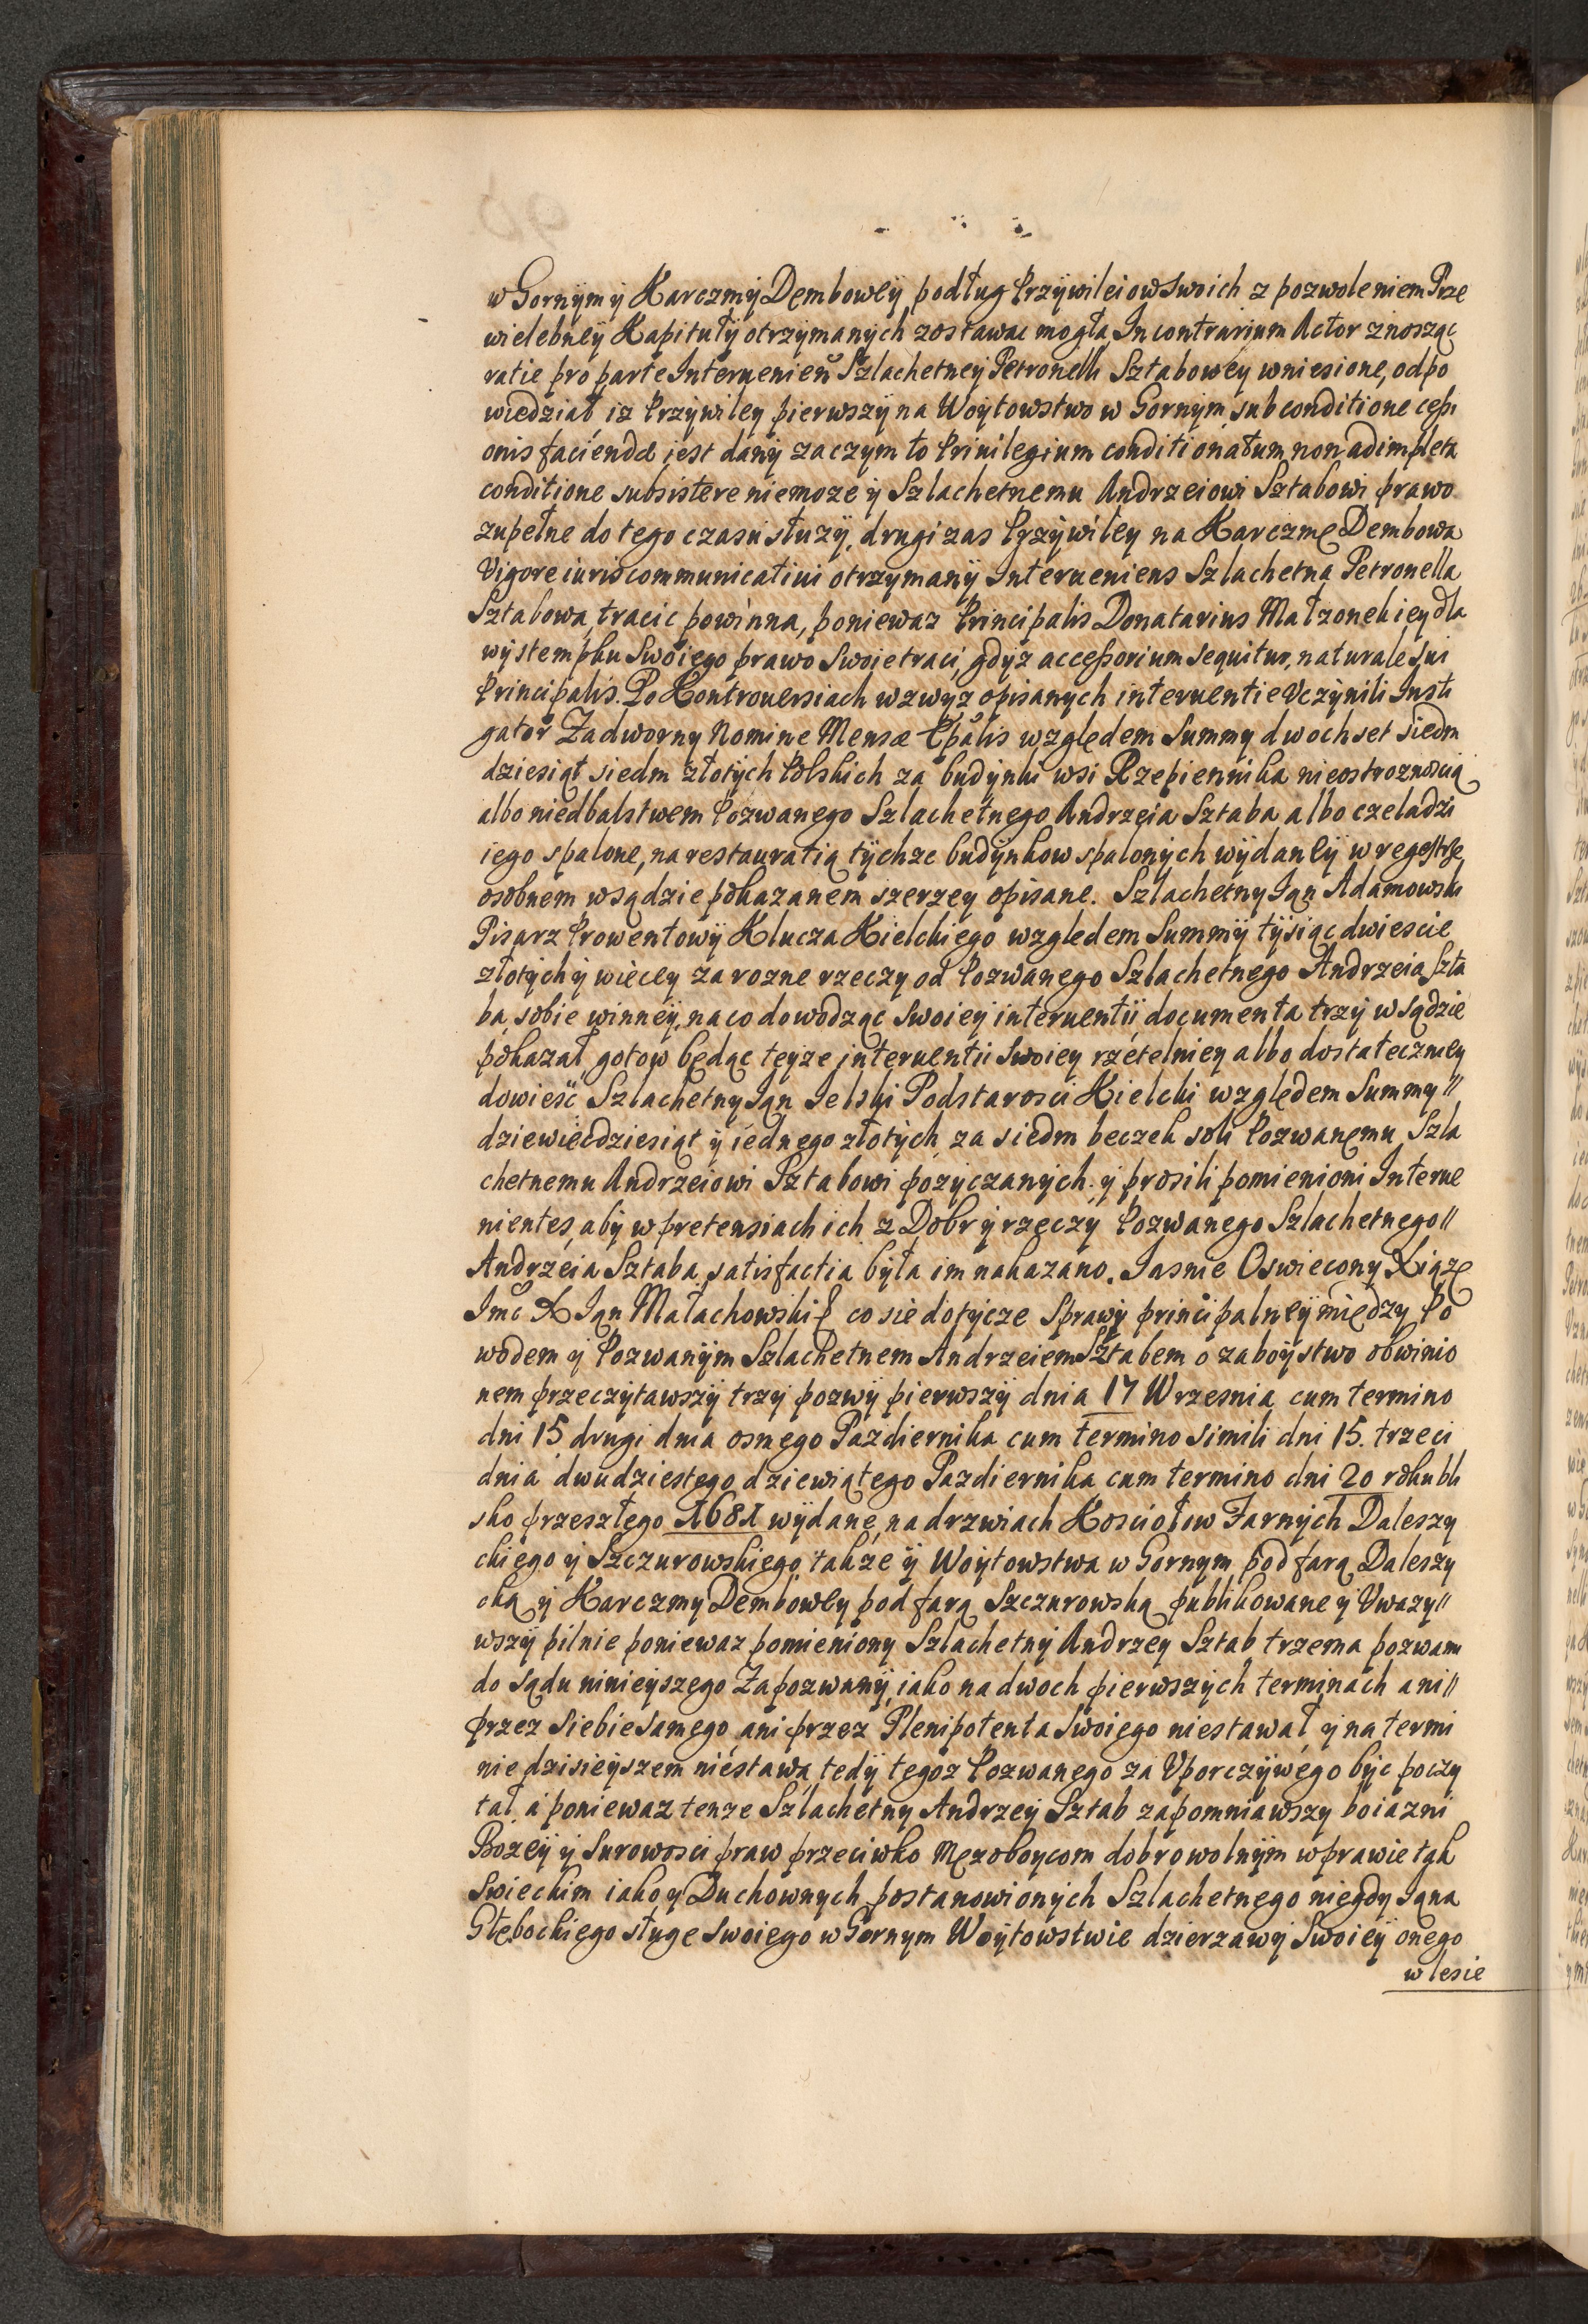 w Gornÿm ÿ Karczmÿ Dembowey podług Przÿwileiow Swoich z pozwoleniem Prze
wielebneÿ Kapitułÿ otrzÿmanÿch zostawac mogła, In contrarium Actor znosząc
ratie pro parte Intervenien Szlachetneÿ Petronelli Sztaboweÿ wniesione, odpo
wiedział, iz Przÿwileÿ pierwszÿ na Woÿtowstwo w Gornÿm sub conditione cessi
onis faciendæ iest danÿ zaczÿm to Priuilegium conditionatum, non adimpleta
conditione subsistere niemoze ÿ Szlachetnemu Andrzeiowi Sztabowi prawo
zupełne do tego czasu słuzÿ, drugi zas Przÿwileÿ na Karczmę Dembową
Vigore iuris communicatiui otrzÿmanÿ Interueniens Szlachetna Petronella
Sztabowa, tracic powinna, poniewaz Principalis Donatarius Małzonek iey dla
wÿstempku Swoiego prawo Swoie traci, gdÿz accessorium sequitur, naturale sui
Principalis. Po Kontrouersiach wzwÿz opisanÿch interuentie Vczÿnili Insti
gator Zadwornÿ Nomine Mensæ Eppalis względem Summÿ dwochset siedm
dziesiąt siedm złotÿch Polskich za budÿnki wsi Rzepiennika nieostroznoscią
albo niedbalstwem Pozwanego Szlachetnego Andrzeia Sztaba albo czeladzi
iego spalone, na restauratią tÿchze budÿnkow spalonÿch wÿdaneÿ w regestrze
osobnem w sądzie pokazanem szerzeÿ opisane. Szlachetnÿ Ian Adamowski
Pisarz Prowentowÿ Klucza Kielckiego względem Summÿ tÿsiąc dwiescie
złotÿch ÿ wiecey za rozne rzeczÿ od Pozwanego Szlachetnego Andrzeia Szta
ba, sobie winneÿ, na co dowodząc Swoieÿ interuentiÿ documenta trzÿ w sądzie
pokazał, gotow będąc teÿze interuentii Swoieÿ rzetelnieÿ albo dostatecznieÿ
dowiesc Szlachetnÿ Ian Ielski Podstarosci Kielcki względem Summÿ //
dziewiecdziesiąt ÿ iednego złotÿch, za siedm beczek soli Pozwanemu Szla
chetnemu Andrzeiowi Sztabowi pozÿczanÿch. ÿ prosili pomienioni Interue
nientes, abÿ w pretensiach ich z Dobr ÿ rzeczÿ Pozwanego Szlachetnego //
Andrzeia Sztaba, satisfactia bÿła im nakazano. Iasnie Oswiecony Xiąze
Imc X Ian Małachowski B co sie dotÿcze Sprawÿ principalneÿ między Po
wodem ÿ Pozwanÿm Szlachetnem Andrzeiem Sztabem o zaboÿstwo obwinio
nem przeczÿtawszÿ trzÿ pozwÿ pierwszÿ dnia 17 Wrzesnia cum termino
dni 15 drugi dnia osmego Pazdiernika cum termino simili dni 15. trzeci
dnia dwudziestego dziewiątego Pazdiernika cum termino dni 20 roku bli
sko przeszłego 1681 wÿdane, na drzwiach Kosciołow Farnÿch Daleszÿ
ckiego ÿ Szczurowskiego, takze ÿ Woÿtowstwa w Gornym pod farą Daleszÿ
cką ÿ Karczmÿ Demboweÿ pod farą Szczurowską publikowane ÿ Vwazÿ //
wszÿ pilnie poniewaz pomienionÿ Szlachetnÿ Andrzeÿ Sztab trzema pozwami
do sądu ninieÿszego Zapozwanÿ, iako na dwoch pierwszÿch terminach ani //
przez siebie samego, ani przez Plenipotenta Swoiego niestawał, ÿ na termi
nie dzisieÿszem niestawa, tedÿ tegoz Pozwanego za Vporczÿwego bÿc poczÿ
tał, a poniewaz tenze Szlachetnÿ Andrzeÿ Sztab zapomniawszÿ boiazni
Bozeÿ ÿ surowosci praw przeciwko Męzoboÿcom dobrowolnÿm w prawie tak
Swieckim iako ÿ Duchownÿch postanowionÿch Szlachetnego niegdÿ Iana
Głębockiego sługe Swoiego w Gornym Woÿtowstwie dzierzawÿ Swoieÿ onego
w lesie